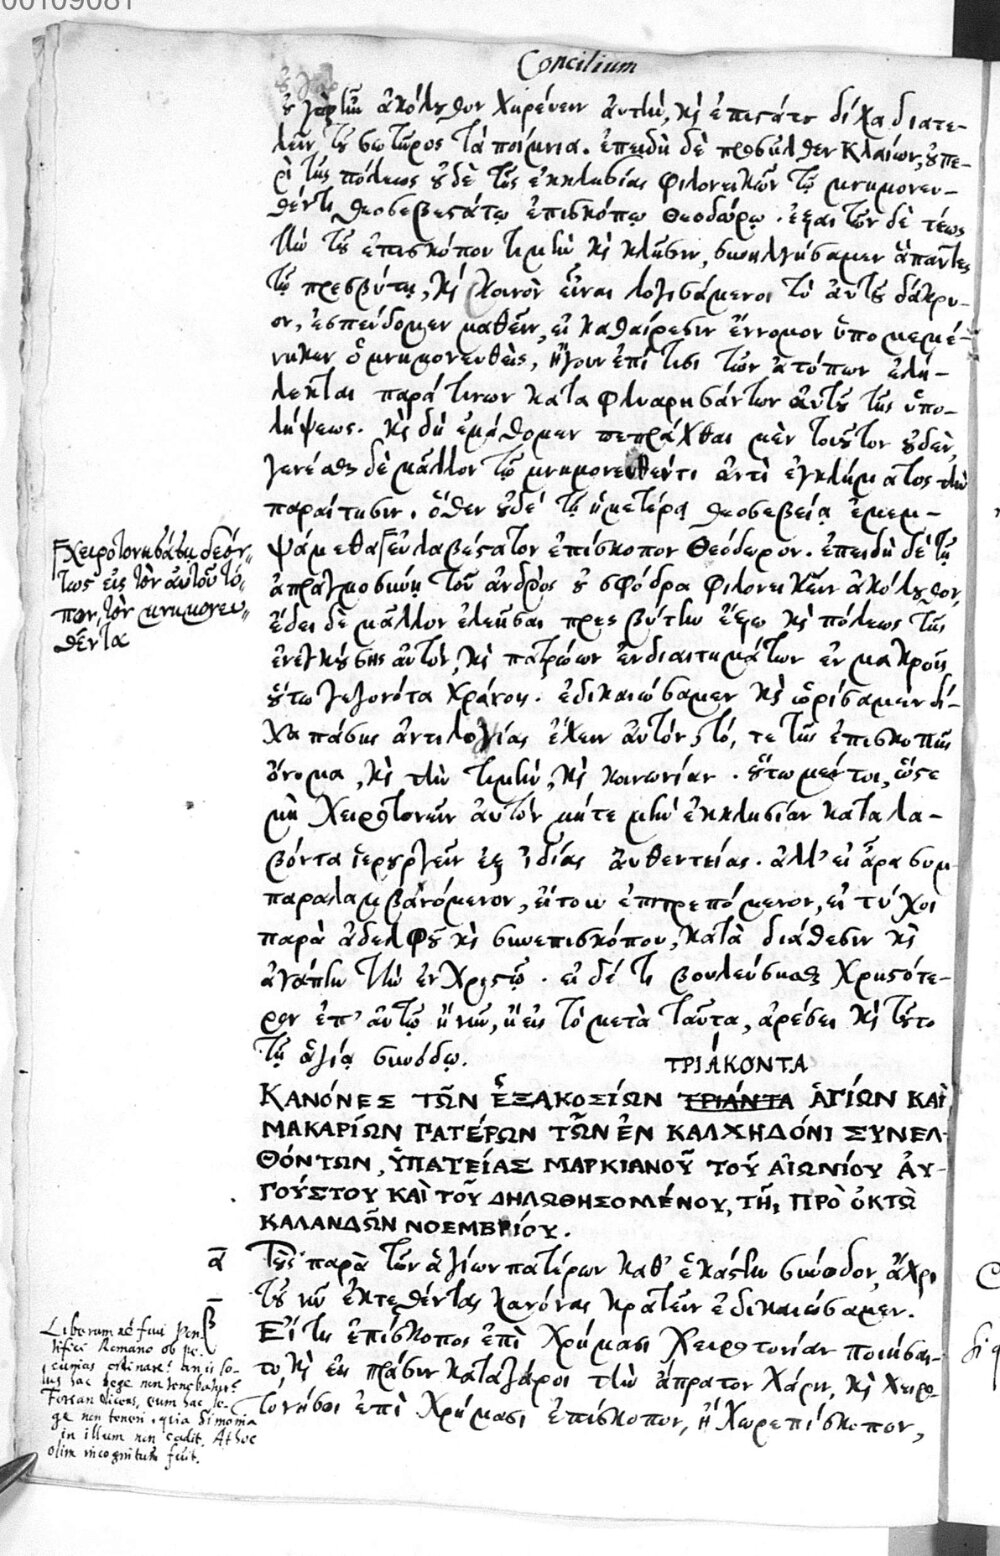 00109081
Concilium
οὐ γὰρ ἦν ἀκόλουθον χηρεύειν αὐτὴν, καὶ ἐπιστάτου δίχα διατε-
λεῖν τοῦ σωτῆρος τὰ ποίμνια. ἐπειδὴ δὲ προσῆλθεν κλαίων, οὐ πε-
ρὶ τῆς πόλεως οὐδὲ τῆς ἐκκλησίας φιλονεικῶν τῷ μνημονευ-
θέντι θεοσεβεστάτῳ ἐπισκόπῳ Θεοδώρῳ. ἐξαιτῶν δὲ τέως
τὴν τοῦ ἐπισκόπου τιμὴν καὶ κλῆσιν, συνηλγήσαμεν ἅπαντες
τῷ πρεσβύτῃ, καὶ κοινὸν εἶναι λογισάμενοι τὸ αὐτοῦ δάκρυ-
ον, ἐσπεύδομεν μαθεῖν, εἰ καθαίρεσιν ἔννομον ὑπομεμέ-
νηκεν ὁ μνημονευθεὶς, ἤγουν ἐπί τισι τῶν ἀτόπων ἐλή-
λεκται παρά τινων καταφλυαρησάντων αὐτοῦ τῆς ὑπο-
λήψεως. καὶ δὴ ἐμάθομεν πεπράχθαι μὲν τοιοῦτον οὐδὲν,
γενέσθαι δὲ μᾶλλον τῷ μνημονευθέντι ἀντὶ ἐγκλήματος τὴν
παραίτησιν. ὅθεν οὐδὲ τῇ ἡμετέρᾳ θεοσεβείᾳ ἐμεμ-
ψάμεθα εὐλαβέστατον ἐπίσκοπον Θεόδωρον. ἐπειδὴ δὲ τῇ
χειροτονησάσῃ δεόν-
τως εἰς τὸν αὐτοῦ τό-
πον, τὸν μνημονευ-
θέντα
ἀπραγμοσύνῃ τοῦ ἀνδρὸς οὐ σφόδρα φιλονεικεῖν ἀκόλουθον,
ἔδει δὲ μᾶλλον ἐλεῆσαι πρεσβύτην ἔξω καὶ πόλεως τῆς
ἐνεγκούσης αὐτὸν, καὶ πατρῴων ἐνδιαιτημάτων ἐν μακροῖς
οὕτω γεγονότα χρόνοις. ἐδικαιώσαμεν καὶ ὡρίσαμεν δί-
χα πάσης ἀντιλογίας ἔχειν αὐτὸν τό, τε τῆς ἐπισκοπῆς
ὄνομα, καὶ τὴν τιμὴν, καὶ κοινωνίαν. οὕτω μέντοι, ὥστε
μὴ χειροτονεῖν αὐτὸν μήτε μὴν ἐκκλησίαν καταλα-
βόντα ἱερουργεῖν ἐξ ἰδίας αὐθεντείας. ἀλλ' εἰ ἄρα συμ-
παραλαμβανόμενον, εἴτουν ἐπιτρεπόμενον, εἰ τύχοι
παρὰ ἀδελφοῦ καὶ συνεπισκόπου, κατὰ διάθεσιν καὶ
ἀγάπην τὴν ἐν Χριστῷ. εἰ δέ τι βουλεύσησθε χρηστότε-
ρον ἐπ' αὐτῷ ἢ νῦν, ἢ εἰς τὸ μετὰ ταῦτα, ἀρέσει καὶ τοῦτο
τῇ ἁγίᾳ συνόδῳ.
ΤΡΙΆΚΟΝΤΑ
ΚΑΝΌΝΕΣ ΤΩ͂Ν ἙΞΑΚΟΣΊΩΝ ΤΡΙΆΝΤΑ ἉΓΊΩΝ ΚΑῚ
ΜΑΚΑΡΊΩΝ ΠΑΤΈΡΩΝ ΤΩ͂Ν ἘΝ ΚΑΛΧΗΔΌΝΙ ΣΥΝΕΛ-
ΘΌΝΤΩΝ, ὙΠΑΤΕΊΑΣ ΜΑΡΚΙΑΝΟΥ͂ ΤΟΥ͂ ΑἸΩΝΊΟΥ ΑὐΥ-
ΓΟΎΣΤΟΥ ΚΑῚ ΤΟΥ͂ ΔΗΛΩΘΗΣΟΜΈΝΟΥ, ΤΗ͂Ι ΠΡῸ ὈΚΤῺ
ΚΑΛΑΝΔΩ͂Ν ΝΟΕΜΒΡΊΟΥ.
α Τοὺς παρὰ τῶν ἁγίων πατέρων καθ' ἑκάστην σύνοδον ἄχρι
τοῦ νῦν ἐκτεθέντας κανόνας κρατεῖν ἐδικαιώσαμεν.
β Εἴ τις ἐπίσκοπος ἐπὶ χρήμασι χειροτονίαν ποιήσαι-
το, καὶ εἰς πρᾶσιν καταγάγοι τὴν ἄπρατον χάριν, καὶ χειρο-
τονήσοι ἐπὶ χρήμασι ἐπίσκοπον, ἢ χωρεπίσκοπον,
Liberum ne fuit Pon
tifici Romano ob pe
cunias ordinare? an is so-
lus hac lege non tenebatur?
Forsan dicens, eum hac le-
ge non teneri, quia Simonia
in illum non cadit. At hoc
olim incognitum fuit.